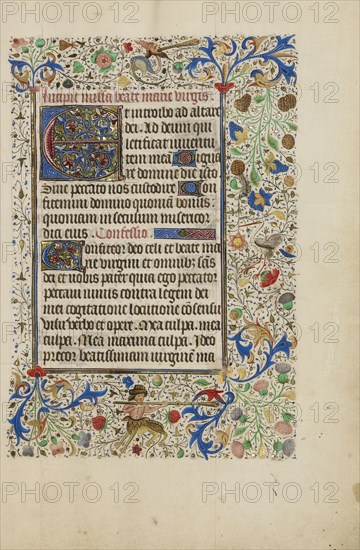 Incipit missa beate marie virgis.
Et introibo ad altare
dei. Ad deum qui
letificat iuuen
tutem meam Digna
re domine die ista
Sine peccato nos custodire Con
fitemini domino quoniam bonus.
quoniam in seculum misericor
dia eius. Confessio.
Confiteor deo celi et beate ma
rie virgini et omnibus sanctis
dei et vobis pater quia ego peccator
peccaui nimis contra legem dei
mei cogitatione locutione consensu
visu verbo et opere. Mea culpa. mea
culpa. Mea maxima culpa. Ideo
precor beatissimam virginem ma
PHOTO 12